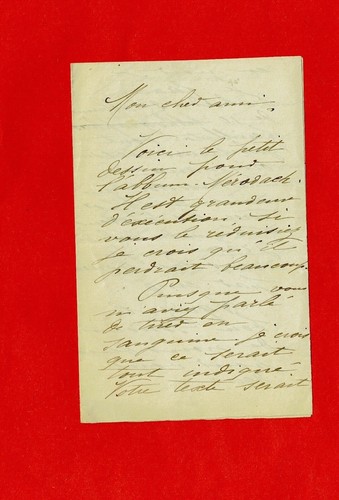 Mon cher ami,
Voici le petit
dessin pour
l'album Mérodack.
Il est grandeur
d'éxécution. Si
vous le reduisiez
je crois qu'il
perdrait beaucoup.
Puisque vous
m'aviez parlé
de tirer en
sanguine je crois
que ce serait
tout indiqué.
Votre texte serait